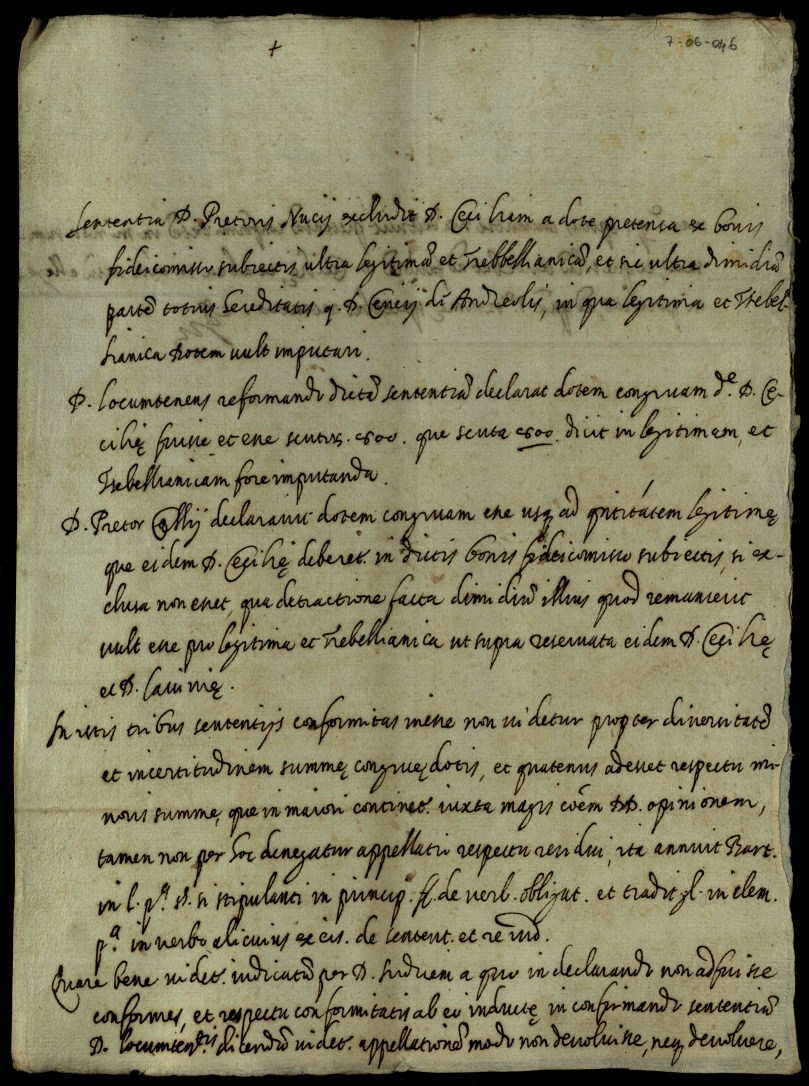 +
7-06-046
Sententia D. Pretoris Nucij excludit D. Cęciliam a dote pretensa ex bonis
fideicomisso subiectis ultra legitimã et Trebbellianicã, et sic ultra dimidiã
partẽ totius hereditatis q. D. Cencij di Andreolis, in qua legitima et Trebel-
lianica dotem vult imputari.
D. locumtenens reformando dictã sententiã declarat dotem congruam dᵉ. D. Cę-
cilię fuisse et esse scutor. 1500. que scuta 1500. dicit in legitimam, et
Trebellianicam fore imputanda.
D. Pretor Callij declaravit dotem congruam esse usq ad qntitátem legitimę
que eidem D. Cęcilię deberet. in dictis bonis fideicomisso subiectis, si ex-
clusa non esset, qua detractione facta dimidiũ illius quod remanserit
vult esse pro legitima et Trebellianica ut supra reservata eidem D. Cęcilię
et D. Lavinię.
In istis tribus sententijs conformitas inesse non videtur propter diversitatẽ
et incertitudinem summę congruę dotis, et quatenus adesset respectu mi-
noris summę, que in maiori continet. iuxta magis cõem DD. opinionem,
tamen non per hoc denegatur appellatio respectu residui, ita annuit Bart.
in l. pª. §. si stipulanti in princip. ff. de verb. obligat. et tradit gl. in clem.
pª. in verbo alicuius ex eis. de sentent. et re iud.
Quare bene videt. iudicatũ per D. Iudicem a quo in declarando non adfuisse
conformes, et respectu conformitatis ab eo inductę in confirmando sententiã
D. locumteñtis dicendũ videt. appellationẽ modo non devoluisse, neq devolvere,